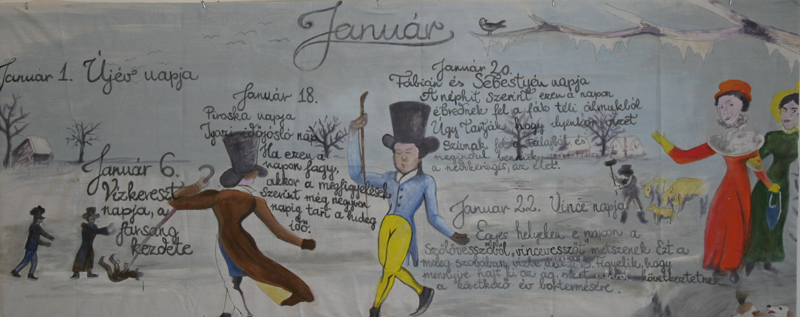 Január
Január 1. Újév napja
Január 6.
Vízkereszt
napja, a
farsang
kezdete
Január 18.
Piroska napja
Igazi időjósló nap
Ha ezen a
napon fagy,
akkor a megfigyelések
szerint még negyven
napig tart a hideg
idő.
Január 20.
Fábián és Sebestyén napja
A néphit szerint ezen a napon
ébrednek fel a fák téli álmukból
Úgy tartják, hogy ilyenkor vizet
szívnak fel a talajból és
megindul bennük
a nedvkeringés, az élet.
Január 22. Vince napja
Egyes helyeken e napon a
szőlővesszőből, vincevesszőt metszenek Ezt a
meleg szobában vízbe figyelik, hogy
mennyire hajt ki az ág, mert következtetnek
a következő év bortermésére.